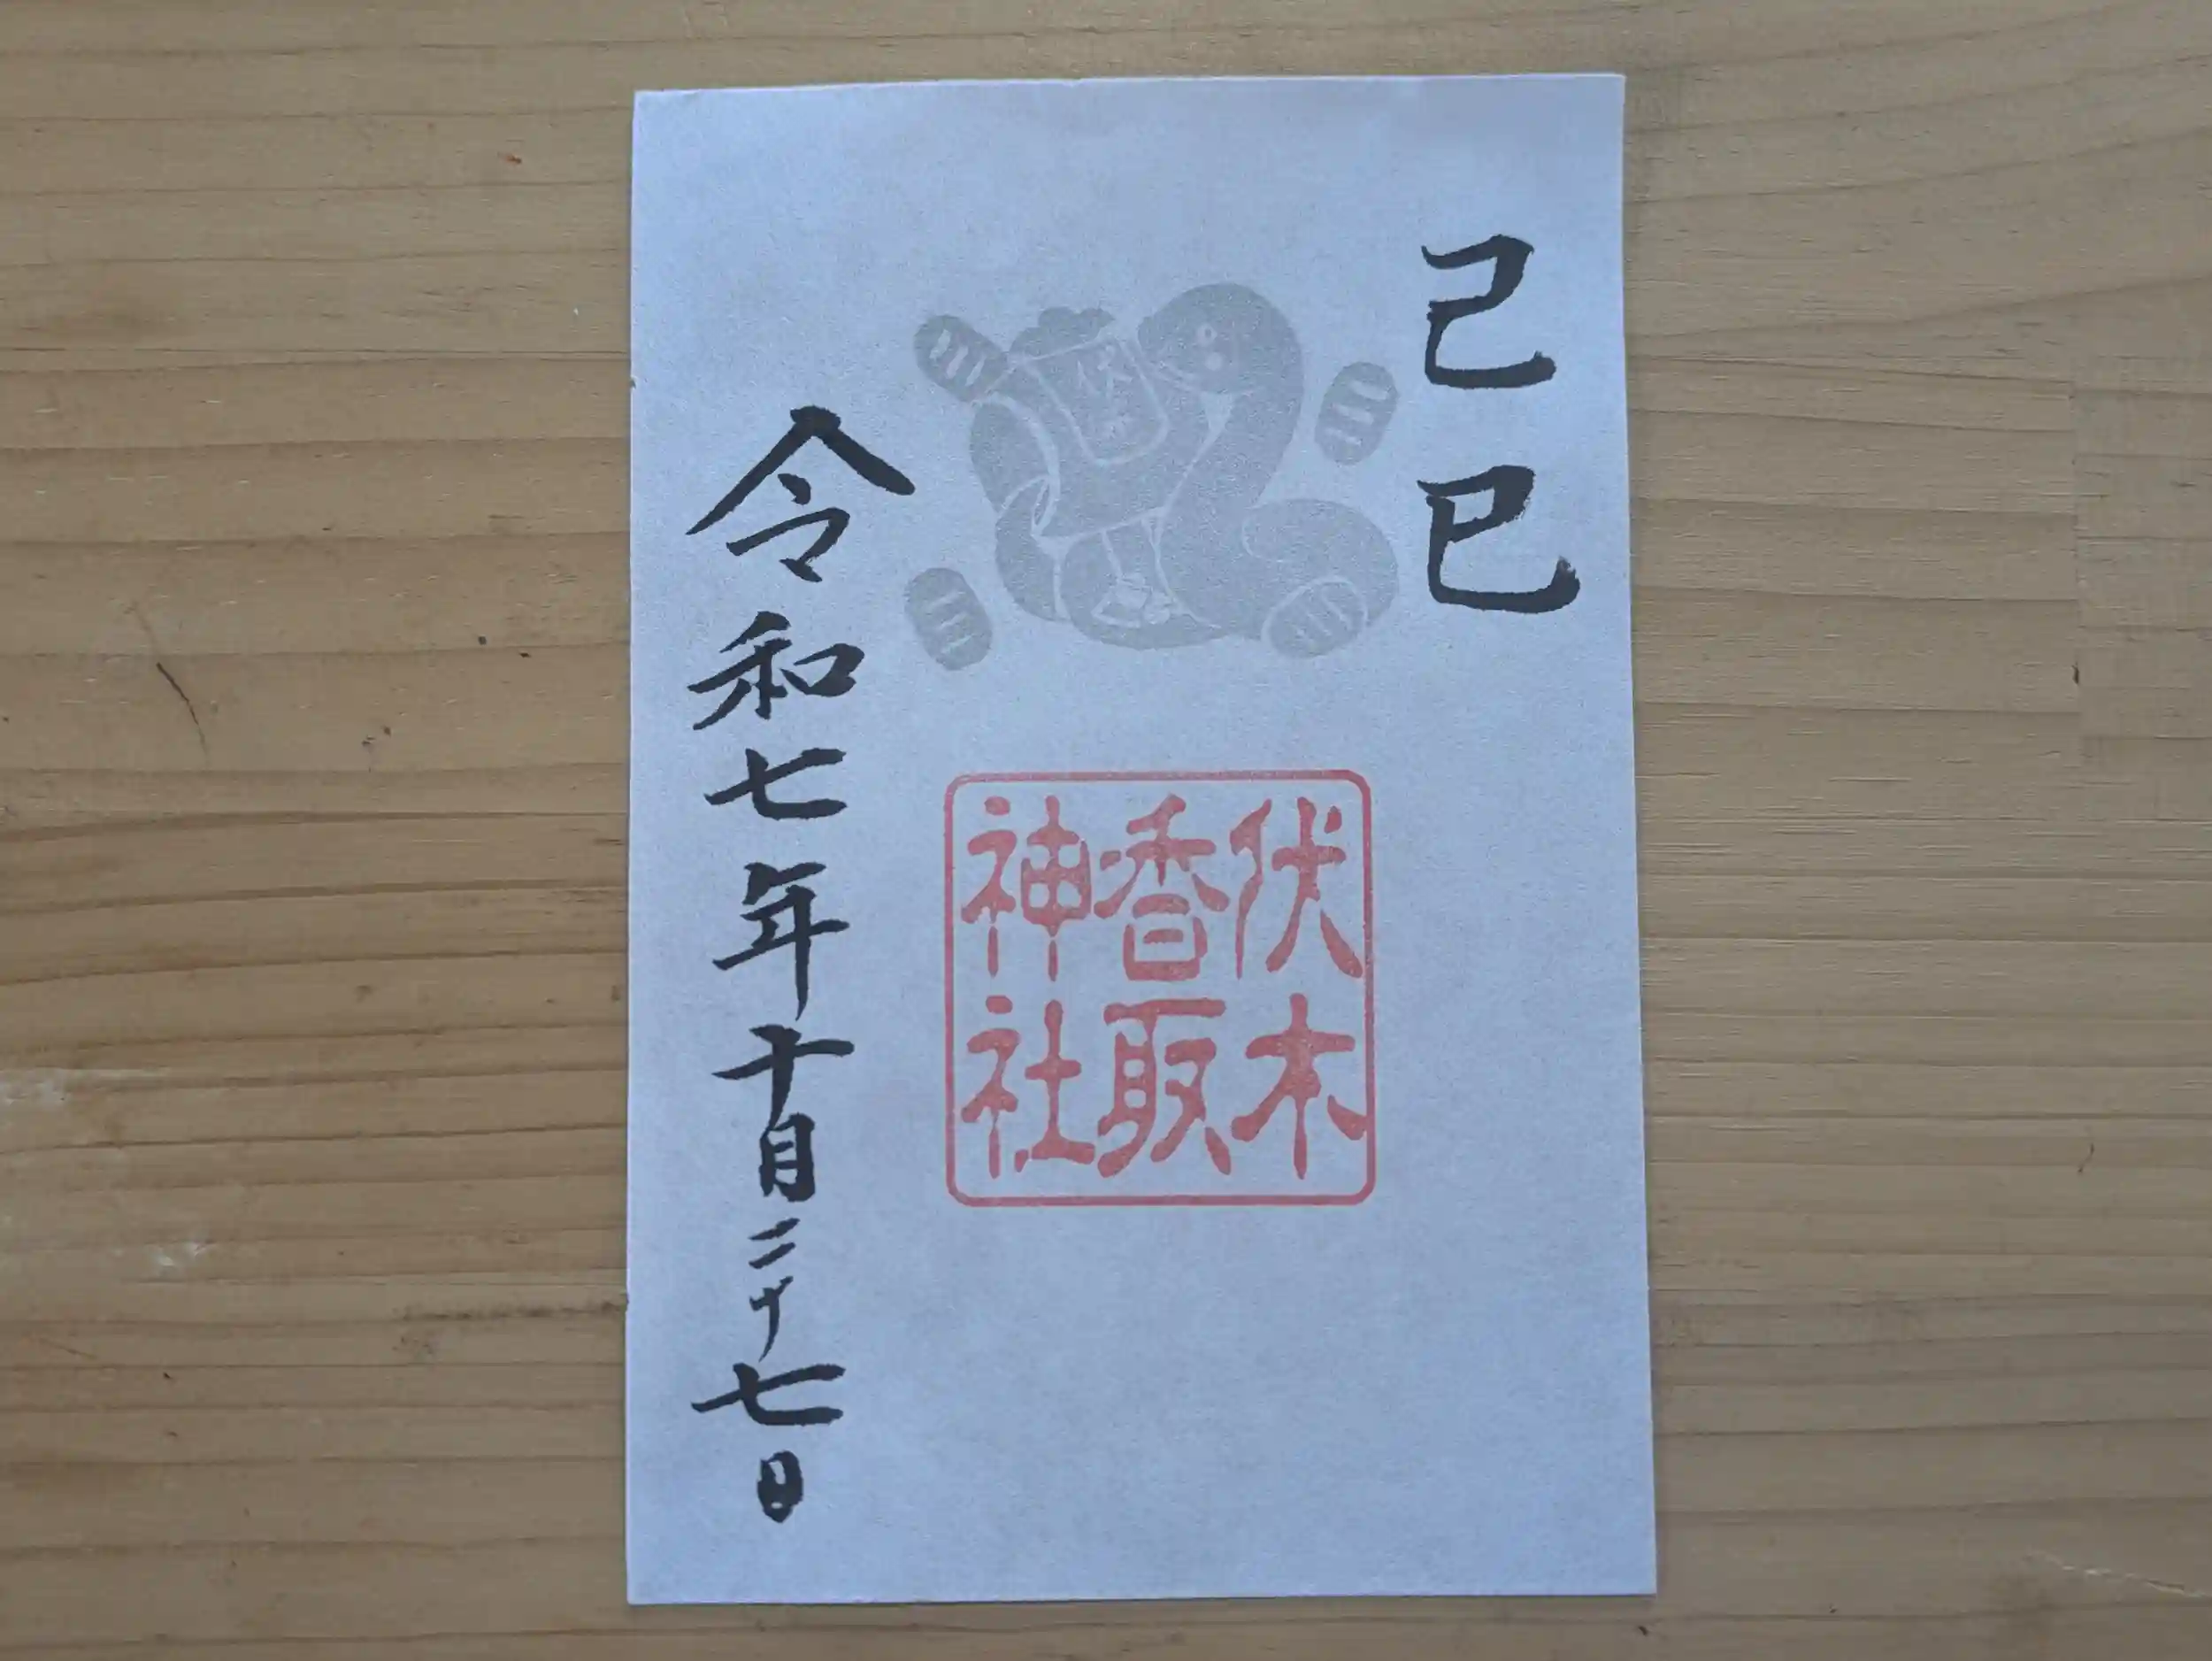 己巳
伏木
伏木
香取
神社
令和七年十月二十七日